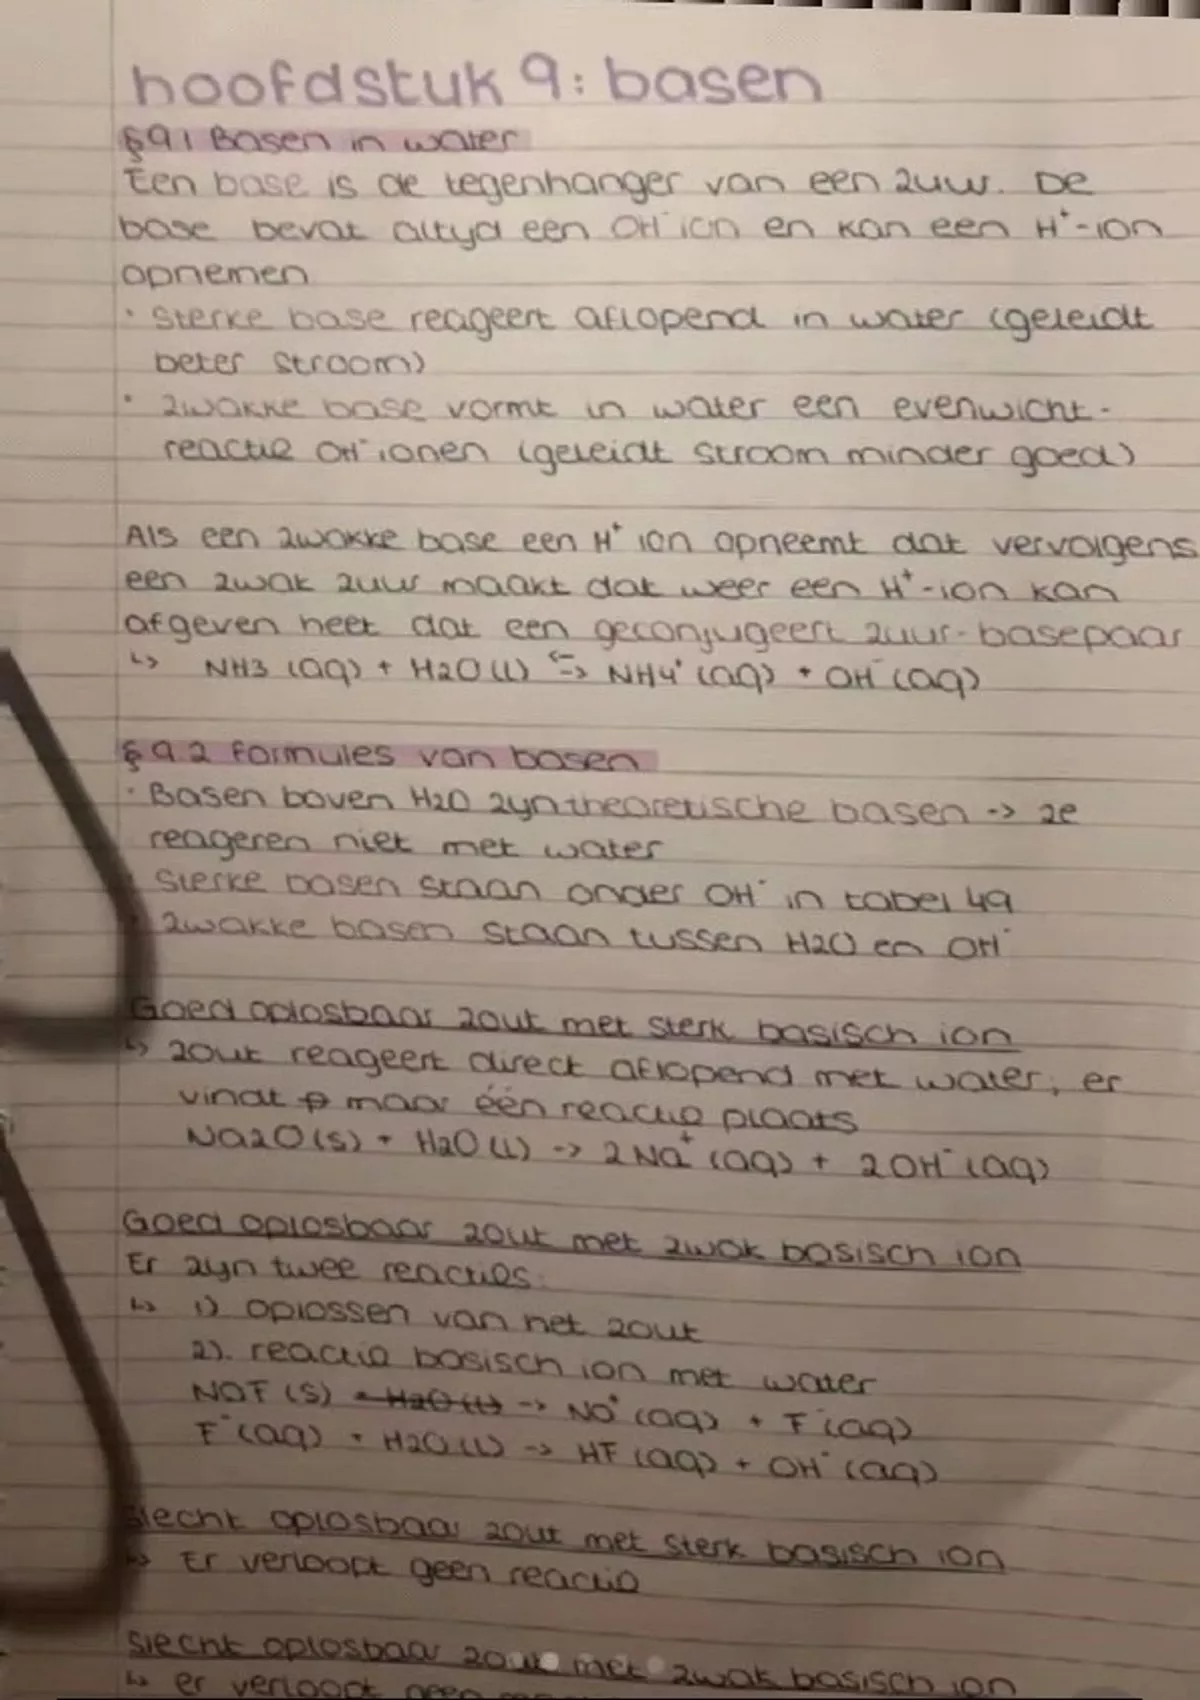 hoofdstuk 9: basen
§9.1 Basen in water
Een base is de tegenhanger van een zuur. De
base bevat altijd een OH⁻ ion en kan een H⁺-ion
opnemen
· Sterke base reageert aflopend in water (geleidt
beter stroom)
· zwakke base vormt in water een evenwicht-
reactie OH⁻ ionen (geleidt stroom minder goed)
Als een zwakke base een H⁺ ion opneemt dat vervolgens
een zwak zuur maakt dat weer een H⁺-ion kan
afgeven heet dat een geconjugeert zuur-basepaar
↳ NH3 (aq) + H2O (l) ⇆ NH4⁺ (aq) + OH⁻ (aq)
§9.2 Formules van basen
· Basen boven H2O zijn theoretische basen -> ze
reageren niet met water
Sterke basen staan onder OH⁻ in tabel 49
zwakke basen staan tussen H2O en OH⁻
Goed oplosbaar zout met sterk basisch ion
↳ zout reageert direct aflopend met water, er
vindt maar één reactie plaats
Na2O (s) + H2O (l) -> 2 Na⁺ (aq) + 2 OH⁻ (aq)
Goed oplosbaar zout met zwak basisch ion
Er zijn twee reacties:
↳ 1) oplossen van het zout
2). reactie basisch ion met water
NaF (s) + H2O (l) -> Na⁺ (aq) + F⁻ (aq)
F⁻ (aq) + H2O (l) -> HF (aq) + OH⁻ (aq)
Slecht oplosbaar zout met sterk basisch ion
↳ Er verloopt geen reactie
Slecht oplosbaar zout met zwak basisch ion
↳ er verloopt geen